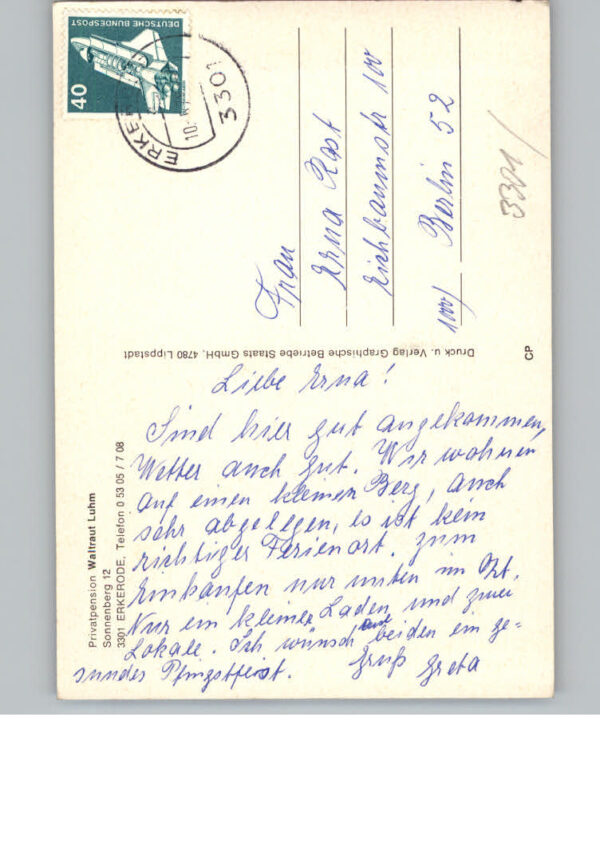 DEUTSCHE BUNDESPOST
40
3301
10.
Frau
Erna Rost
Eichbaumstr 100
1000 Berlin 52
3301/
Druck u. Verlag Graphische Betriebe Staats GmbH, 4780 Lippstadt
CP
Privatpension Waltraut Luhm
Sonnenberg 12
3301 ERKERODE, Telefon 0 53 05 / 7 08
Liebe Erna!
Sind hier gut angekommen,
Wetter auch gut. Wir wohnen
auf einen kleinen Berg, auch
sehr abgelegen, es ist kein
richtiger Ferienort. zum
Einkaufen nur unten im Ort.
Nur ein kleiner Laden und zwei
Lokale. Ich wünsch euch beiden ein ge=
sundes Pfingstfest.
Gruß Greta